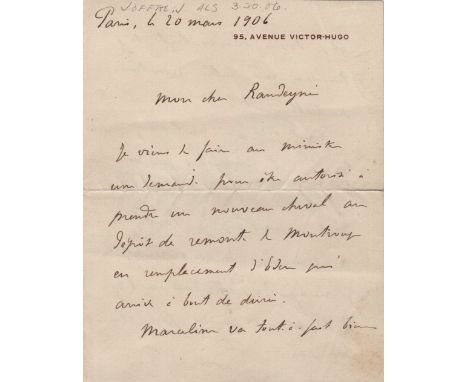 JOFFRE, J. ALS 3-20-06.
Paris, le 20 mars 1906
95, AVENUE VICTOR-HUGO
Mon cher
Je viens de faire au ministre
une demande pour être autorisé à
prendre un nouveau cheval au
dépôt de remonte de Montrouge
en remplacement d'
arrive à bout de durée.
va tout-à-fait bien